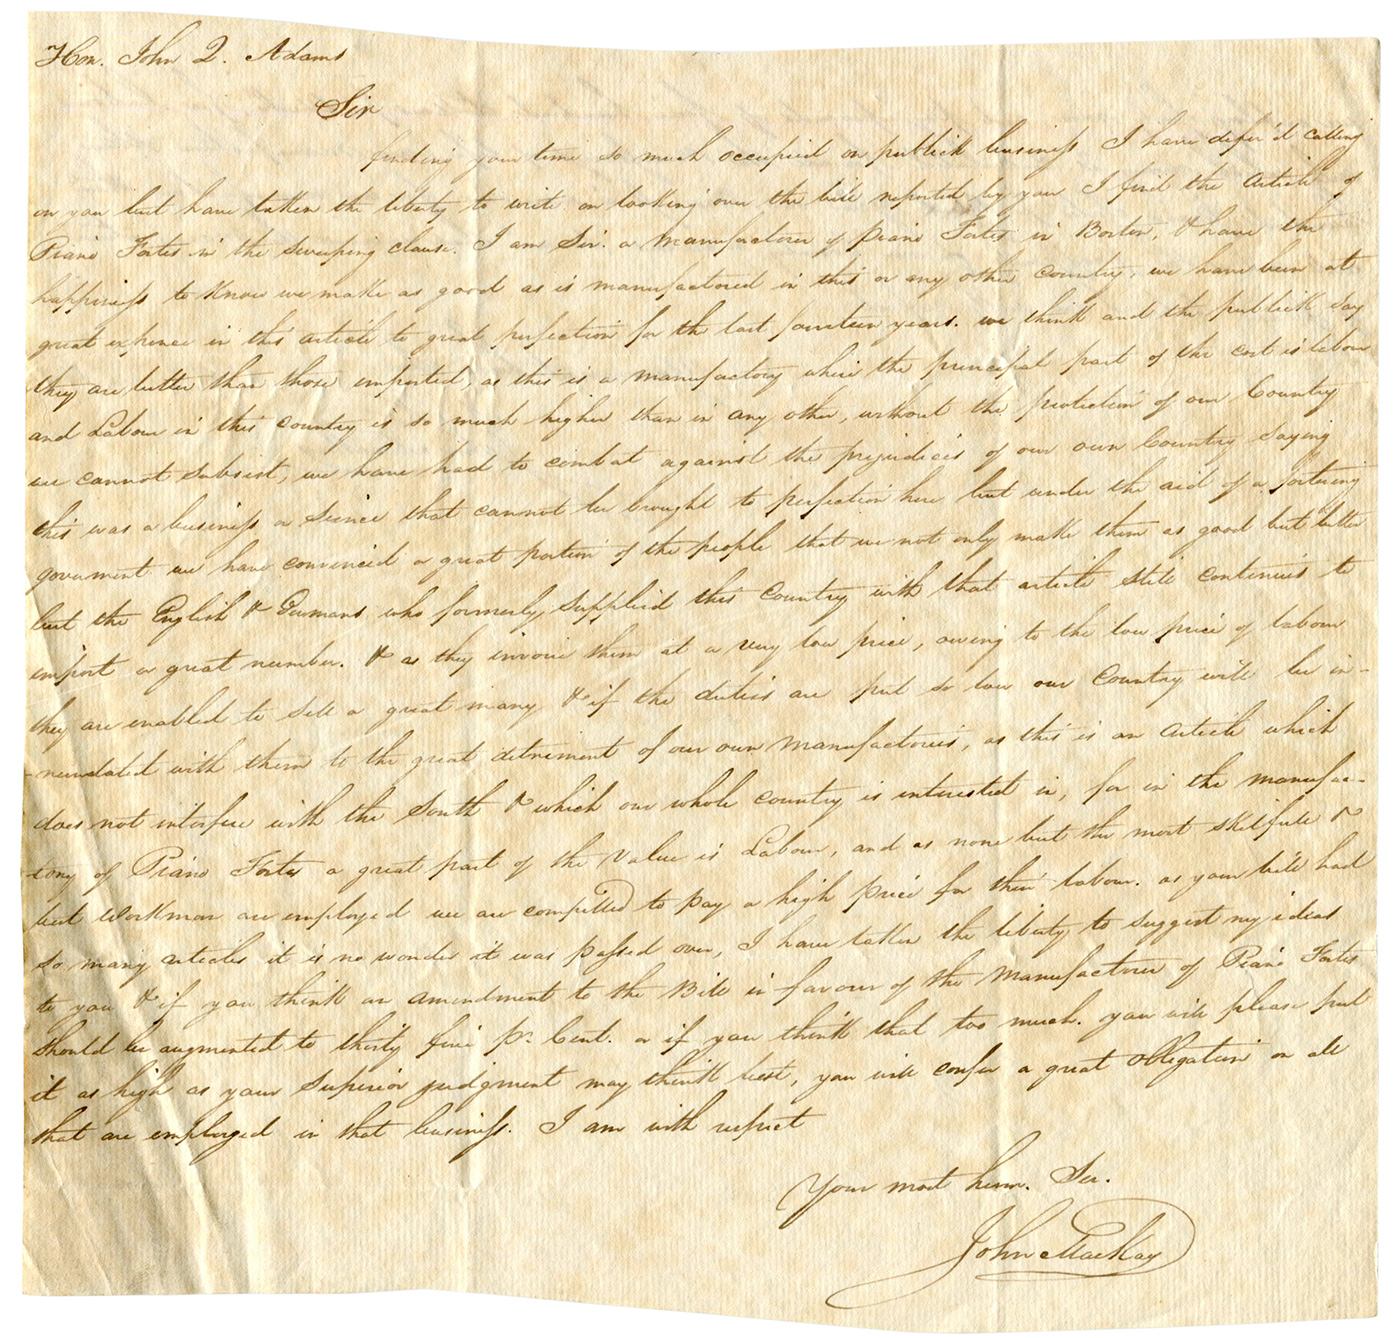 Hon. John Q. Adams
Sir
finding your time so much occupied on publick business I have defer'd calling
on you but have taken the liberty to write on looking over the bill reported by you I find the Article of
Piano Fortes in the sweeping clause. I am Sir. a manufacturer of Piano Fortes in Boston, & have the
happiness to know we make as good as is manufactored in this or any other Country. we have been at
great expence in this article to great perfection for the last fourteen years. we think and the publick say
they are better than those imported, as this is a manufactory where the principal part of the cost is labour
and Labour in this country is so much higher than in any other, without the protection of our Country
we cannot subsist, we have had to combat against the prejudices of our own Country saying
this was a business or Sience that cannot be brought to perfection here but under the aid of a fostering
goverment we have convinced a great portion of the people that we not only make them as good but better
but the English & Germans who formerly supplied this Country with that article still continues to
import a great number. & as they invoice them at a very low price, owing to the low price of labour
they are enabled to sell a great many & if the duties are put so low our Country will be in-
-nundated with them to the great detriment of our own manufactories, as this is an Article which
does not interfere with the South & which our whole country is interested in, for in the manufac-
tory of Piano Fortes a great part of the Value is Labour, and as none but the most skilfull &
best workman are employed we are compelled to pay a high price for their labour. as your bill had
so many articles it is no wonder it was passed over, I have taken the liberty to suggest my ideas
to you & if you think an amendment to the Bill in favour of the manufacturer of Piano Fortes
should be augmented to thirty five pr. Cent. or if you think that too much. you will please put
it as high as your superior judgment may think best, you will confer a great obligation on all
that are employed in that business. I am with respect
Your most hum. Ser.
John Mackay